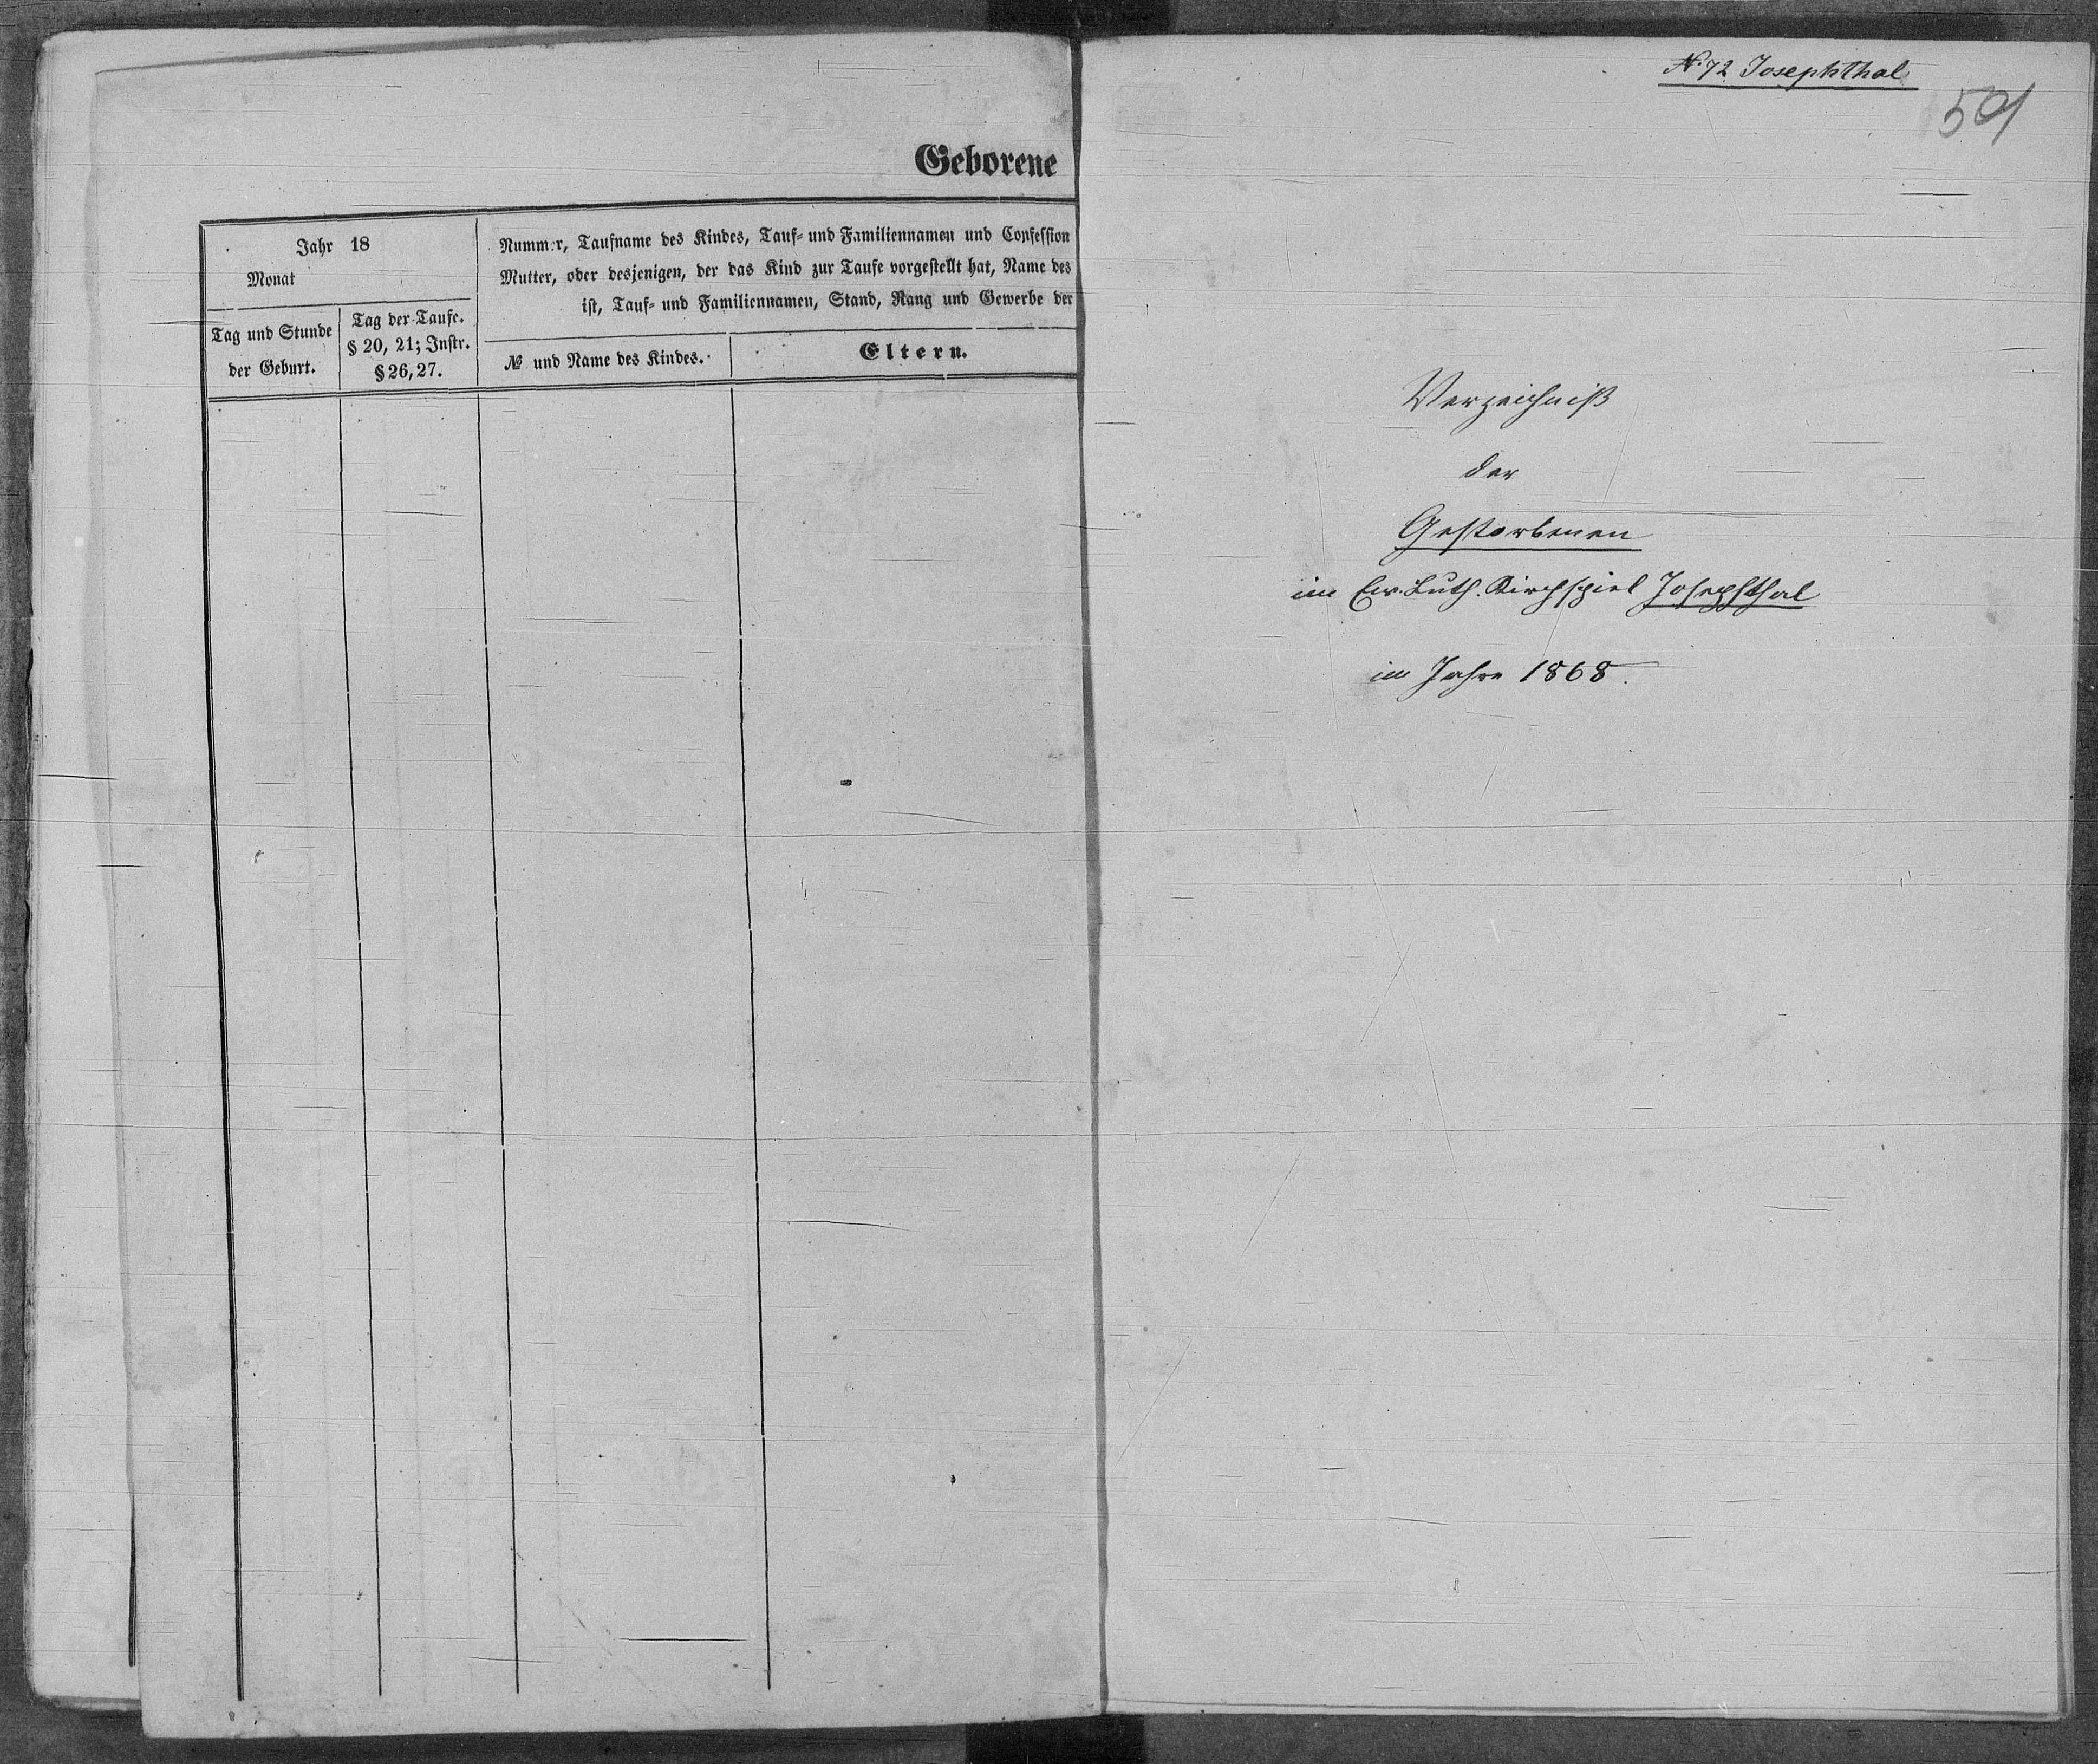 Geborene
Jahr 18
Monat
Tag und Stunde
der Geburt.
Tag der Taufe.
§ 20, 21; Instr.
§ 26, 27.
Nummer, Taufname des Kindes, Tauf- und Familiennamen und Confession
Mutter, oder desjenigen, der das Kind zur Taufe vorgestellt hat, Name des
ist, Tauf- und Familiennamen, Stand, Rang und Gewerbe der
№ und Name des Kindes.
Eltern.
N. 72 Josephthal
501
Verzeichniß
der
Gestorbenen
im Ev. Luth. Kirchspiel Josephsthal
im Jahre 1868.